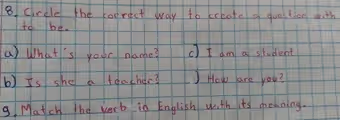 8. Circle the correct way to create a question with
to be.
a) What's your name? c) I am a student
b) Is she a teacher? ) How are you?
9. Match the verb in English with its meaning.